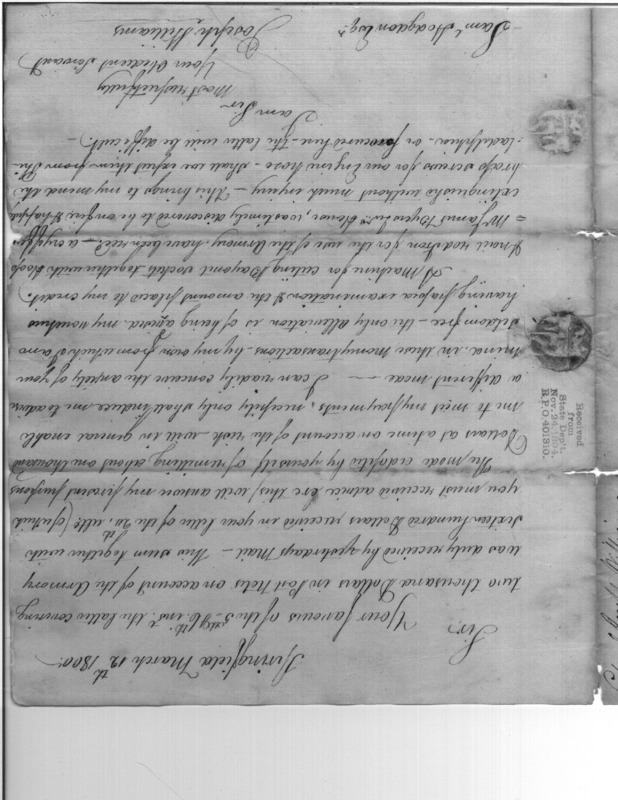 Springfield March 12th 1800.
Sir,
Your favours of the 3d & 6th inst. the latter covering
two thousand Dollars in Post Notes on account of the Armory
was duly received by yesterdays Mail — this sum together with
sixteen hundred Dollars received in your letter of the 20th ulto. (of which
you must received advice ere this) will answer my present purposes
The mode adopted by yourself of remitting about one thousand
Dollars at a time on account of the risk — will in general enable
me to meet my payments, necessity only shall induce me to advise
a different mode — I can readily conceive the anxiety of your
mind in these money transactions — by my own from which I am
seldom free — the only alleviation is of being apprised my vouchers
having passed examination & the amount placed to my credit.
A Machine for cutting Bayonet sockets together with
& nail rod Iron for the use of the Armory have been rec'd — a
Mr James Byers Jnrs Store, was timely discovered to be on fire & happily
extinguished without much injury — this brings to my mind the
brass screws for our Engine hose — shall we expect them from Phi-
ladelphia — or procured here — the latter will be difficult. —
I am Sir
Most respectfully
Your Obedient Servant
Joseph Williams
Saml Hodgdon Esqr
Received
from
State Dept.
Nov. 24, 1894.
R.P.O 401310.